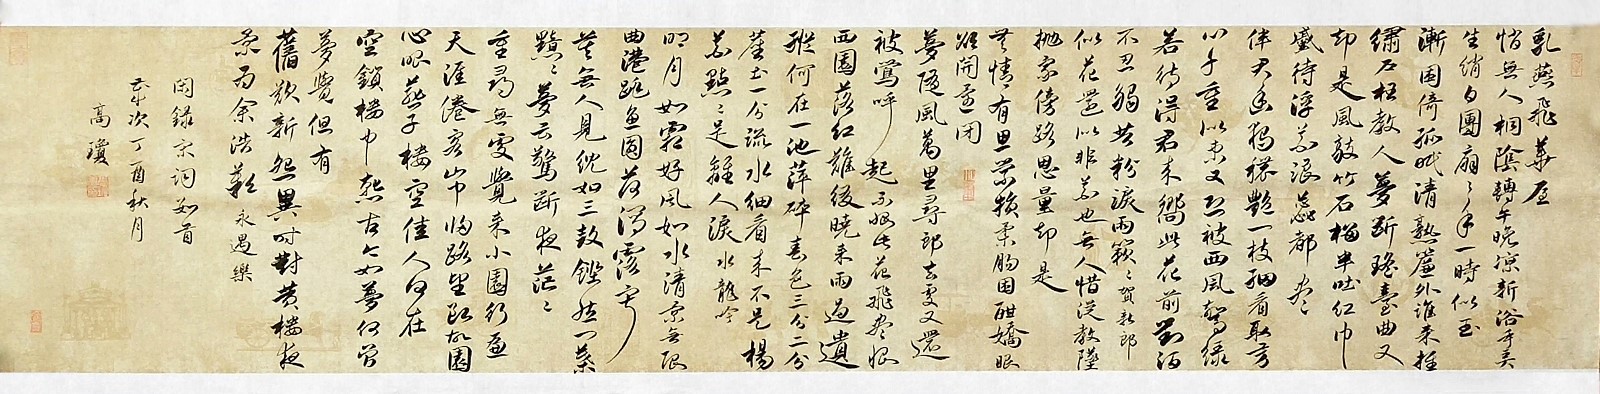 乳燕飛華屋
悄無人桐陰轉午晚涼新浴手弄
生綃白團扇扇手一時似玉
漸困倚孤眠清熟簾外誰来推
繡户枉教人夢斷瑤臺曲又
却是風敲竹石榴半吐紅巾
蹙待浮花浪蕊都盡
伴君幽獨穠艷一枝細看取芳
心千重似束又恐被西風驚綠
若待得君来嚮此花前對酒
不忍觸共粉淚兩簌簌賀新郎
似花還似非花也無人惜從教墜
抛家傍路思量却是
無情有思縈損柔腸困酣嬌眼
欲開還閉
夢隨風萬里尋郎去處又還
被鶯呼起不恨此花飛盡恨
西園落紅難綴曉来雨過遺
蹤何在一池萍碎春色三分二分
塵土一分流水細看来不是楊
花點點是離人淚水龍吟
明月如霜好風如水清景無限
曲港跳魚圓荷瀉露寂
寞無人見紞如三鼓鏗然一葉
黯黯夢雲驚斷夜茫茫
重尋無處覺来小園行遍
天涯倦客山中歸路望斷故園
心眼燕子樓空佳人何在
空鎖樓中燕古今如夢何曾
夢覺但有
舊歡新怨異时對黄樓夜
景為余浩歎永遇樂
閑錄宋詞如首
歲次丁酉秋月
高瓊